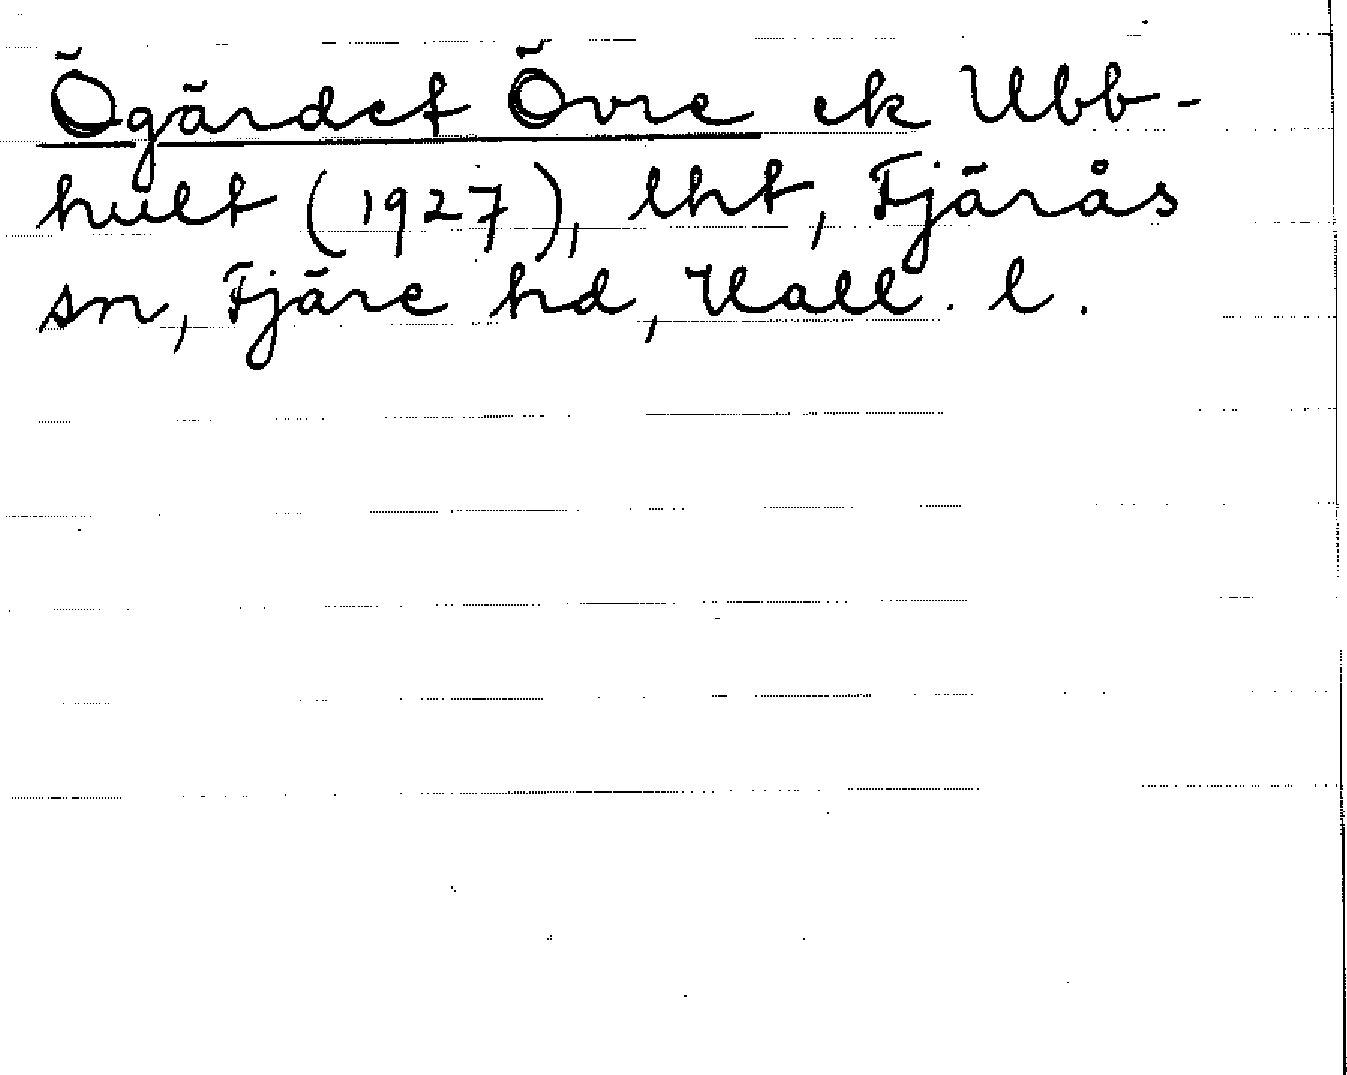 Ögärdet Övre ek Ubb-
hult (1927), lht, Fjärås
sn, Fjäre hd, Hall. l.